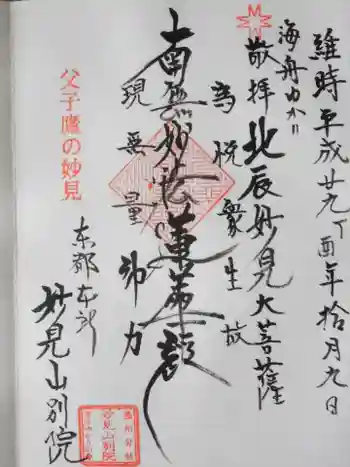 維時平成廿九丁酉年拾月九日
海舟ゆかり
敬拝北辰妙見大菩薩
為悦衆生故
南無妙法蓮華経
現無量神力
父子鷹の妙見
東都本所
妙見山別院
能勢
妙見山別院